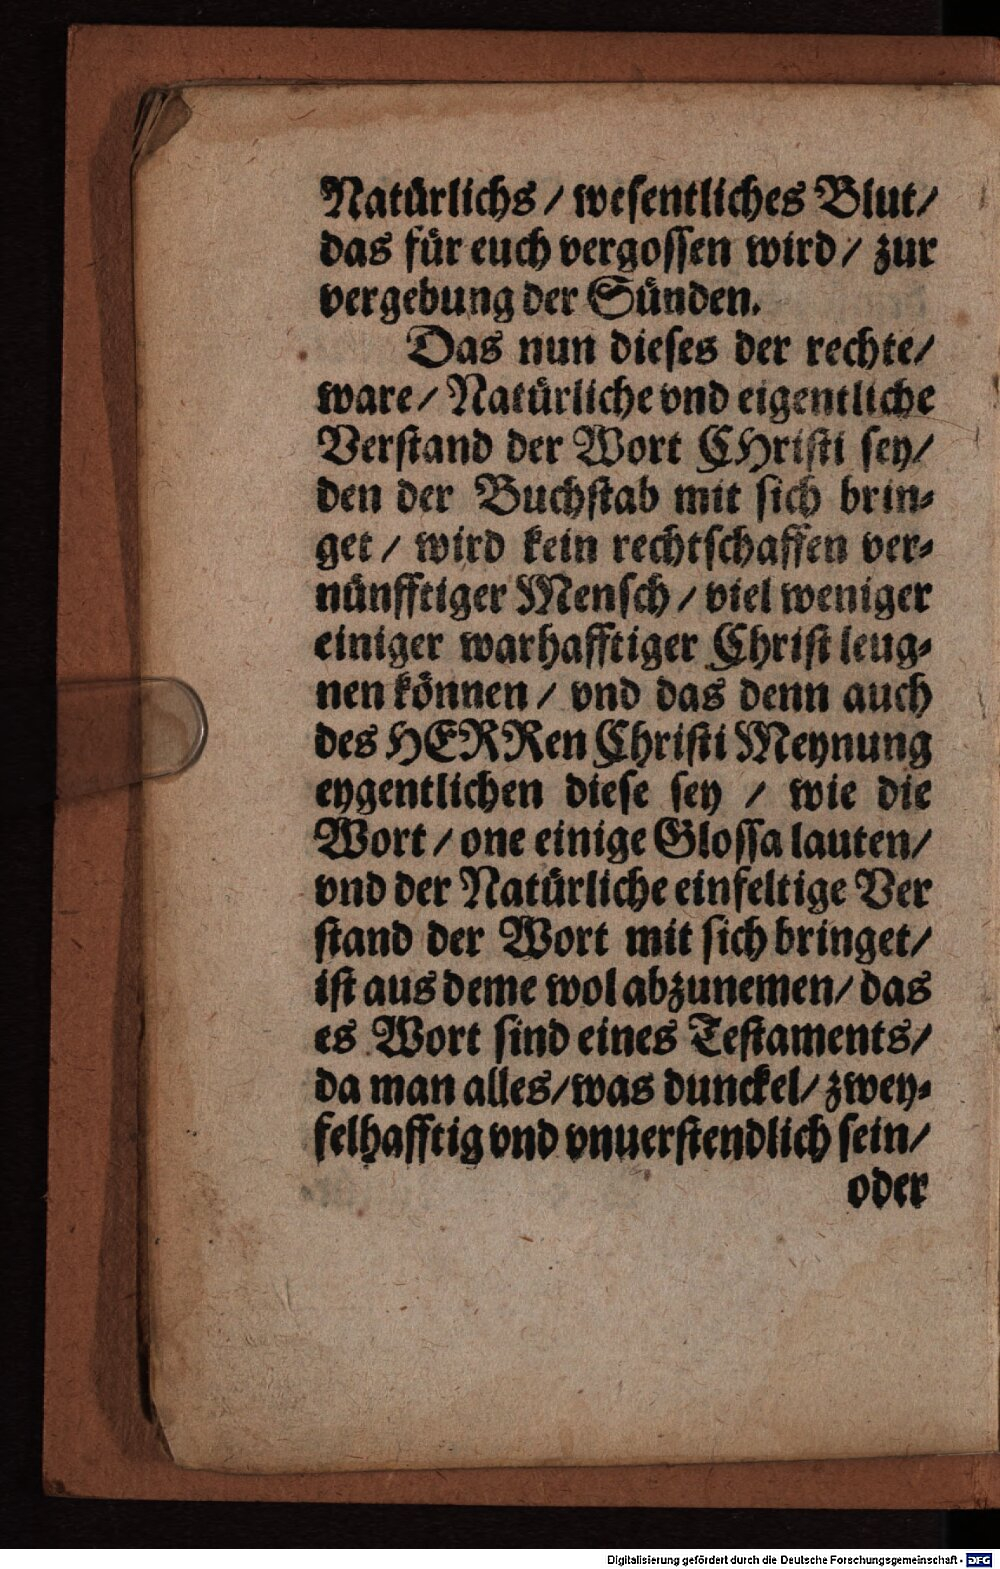 Natürlichs / wesentliches Blut/
das für euch vergossen wird / zur
vergebung der Sünden.
Das nun dieses der rechte/
ware / Natürliche vnd eigentliche
Verstand der Wort CHristi sey/
den der Buchstab mit sich brin-
get / wird kein rechtschaffen ver-
nünfftiger Mensch / viel weniger
einiger warhafftiger Christ leug-
nen können / vnd das denn auch
des HERRen Christi Meynung
eygentlichen diese sey / wie die
Wort / one einige Glossa lauten/
vnd der Natürliche einfeltige Ver
stand der Wort mit sich bringet/
ist aus deme wol abzunemen/ das
es Wort sind eines Testaments/
da man alles/was dunckel/ zwey-
felhafftig vnd vnuerstendlich sein/
oder
Digitalisierung gefördert durch die Deutsche Forschungsgemeinschaft - DFG